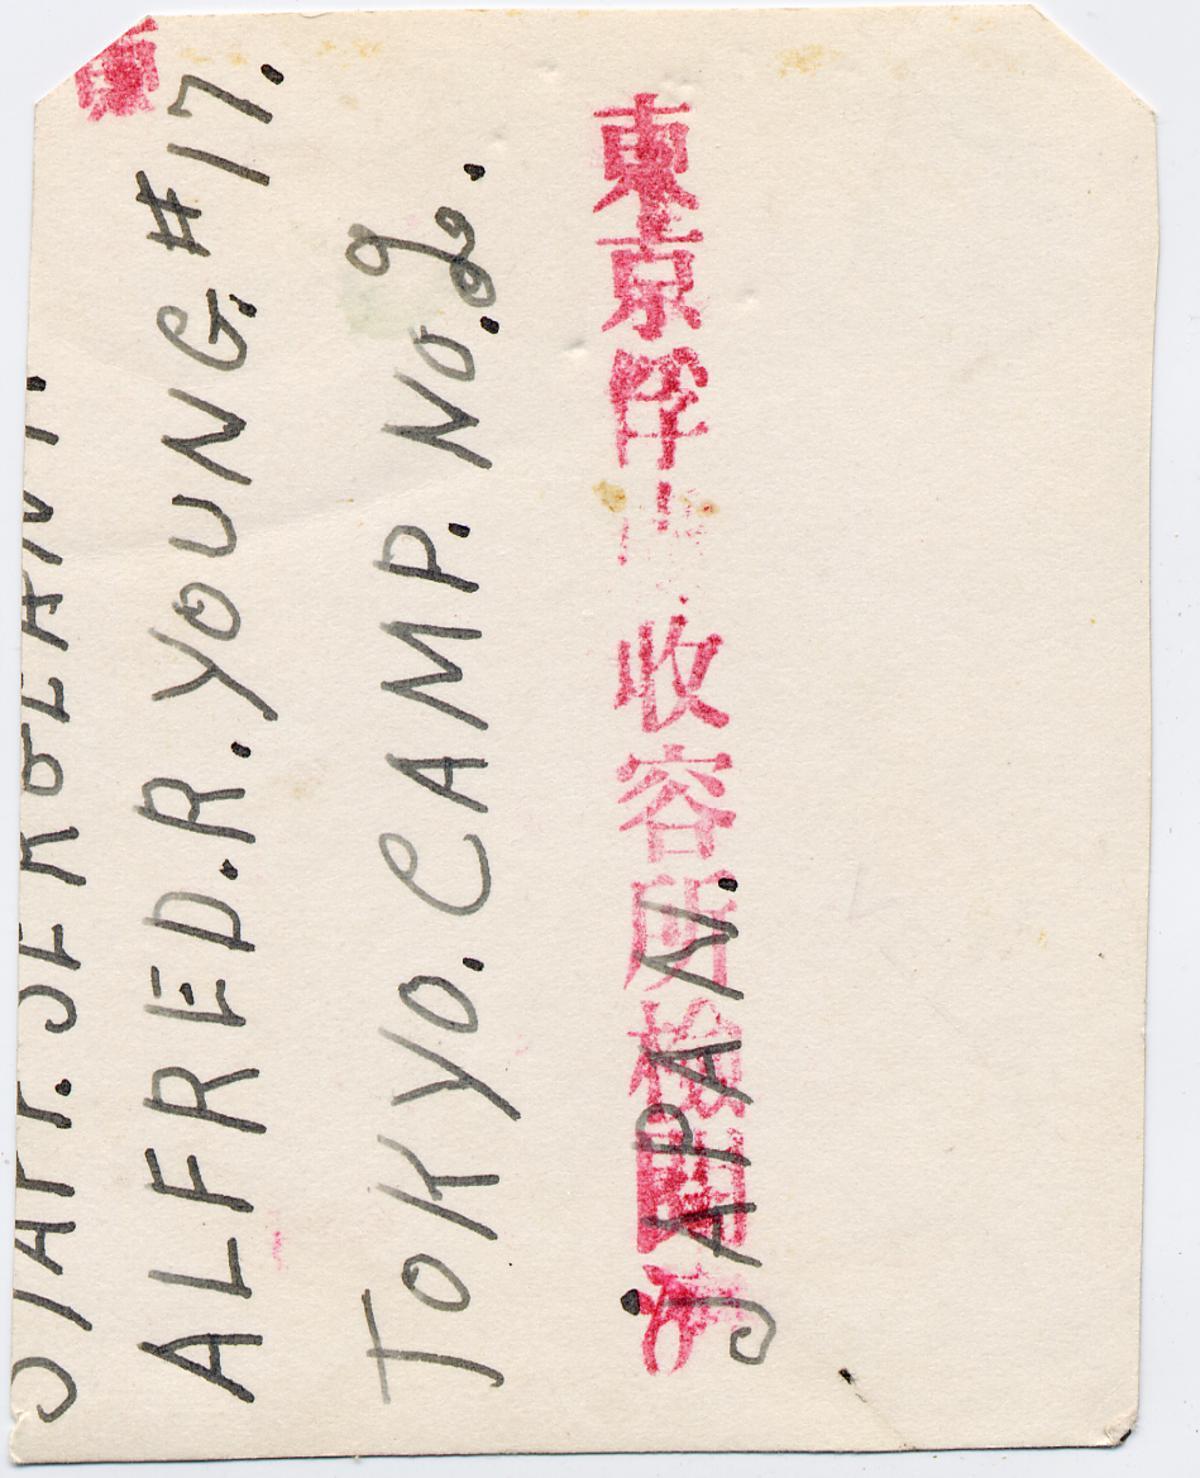 STAFF. SERGEANT.
ALFRED.R.YOUNG.#17.
TOKYO.CAMP.No.2.
JAPAN.
東京俘虜收容所檢閲済